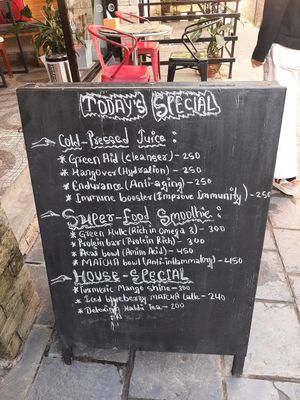 TODAY'S SPECIAL
Cold-Pressed Juice:
* Green Aid (cleanser) - 250
* Hangover (Hydration) - 250
* Endurance (Anti-aging) - 250
* Immune booster (Improve Immunity) - 250
SUPER-FOOD Smoothie:
* Green Hulk (Rich in Omega 3) - 300
* Protein bar (Protein Rich) - 300
* Acai bowl (Amino Acid) - 450
* MATCHA bowl (Anti-inflammatory) - 450
HOUSE-SPECIAL
* Turmeric Mango Shine - 300
* Iced blueberry MATCHA Latte - 240
* Detoxing Haldi Tea - 200